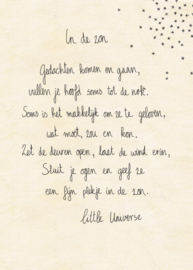 In de zon
Gedachten komen en gaan,
vullen je hoofd soms tot de nok.
Soms is het makkelijk om ze te geloven,
wat moet, zou en kon.
Zet de deuren open, laat de wind erin,
Sluit je ogen en geef ze
een fijn plekje in de zon.
little Universe